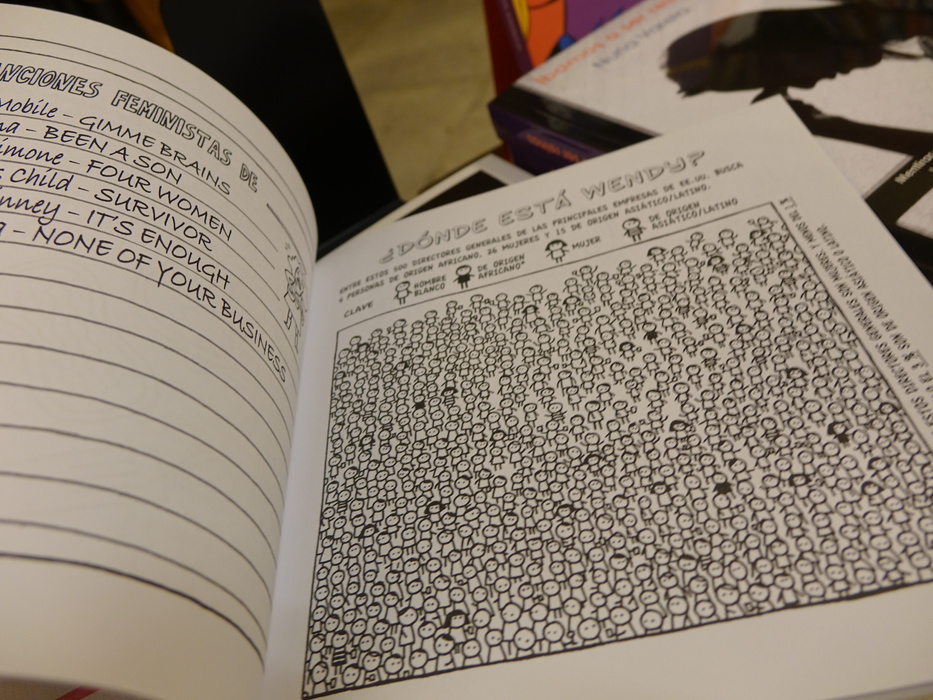 ANCIONES FEMINISTAS DE
Mobile - GIMME BRAINS
na - BEEN A SON
imone - FOUR WOMEN
s Child - SURVIVOR
nney - IT'S ENOUGH
- NONE OF YOUR BUSINESS
¿DÓNDE ESTÁ WENDY?
ENTRE ESTOS 500 DIRECTORES GENERALES DE LAS PRINCIPALES EMPRESAS DE EE.UU. BUSCA
4 PERSONAS DE ORIGEN AFRICANO, 26 MUJERES Y 15 DE ORIGEN ASIÁTICO/LATINO.
CLAVE
HOMBRE
BLANCO
DE ORIGEN
AFRICANO*
MUJER
DE ORIGEN
ASIÁTICO/LATINO
DIRECTORES GENERALES SON MUJERES
DE ORIGEN ASIÁTICO O LATINO.